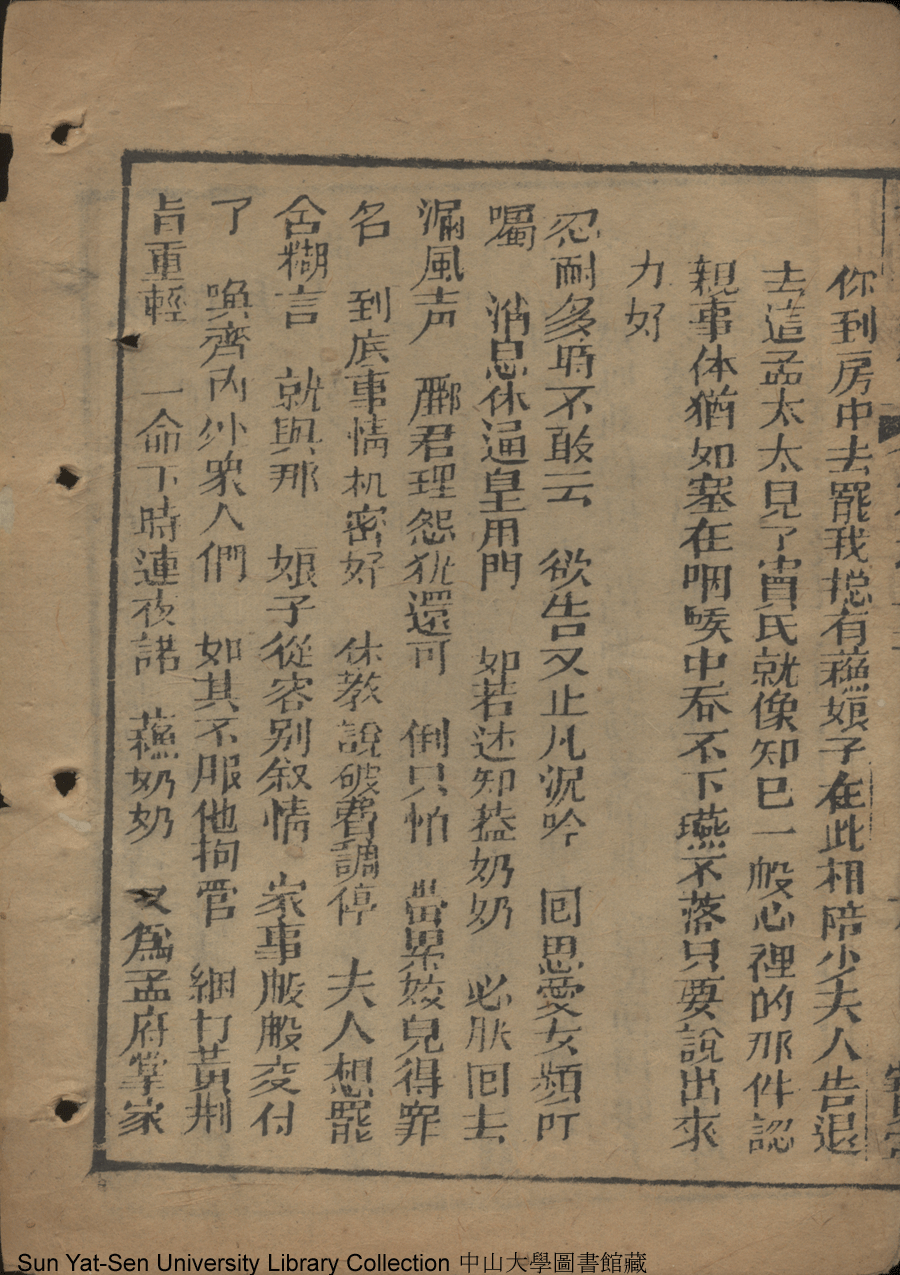 你到房中去罷我捴有蘓娘子在此相陪少夫人告退
去這孟太太見了蘓氏就像知已一般心裡的那件認
親事体猶如塞在咽喉中吞不下嚥不落只要說出來
力好
忍耐多時不敢云　欲告又止几沉吟　回思愛女頻叮
囑　消息休通皇甫門　如若达知蘓奶奶　必肰回去
漏風声　郦君理怨犹還可　倒只怕　带累姣兒得罪
名　到底事情机密好　休教說破費調停　夫人想罷
含糊言　就與那　娘子從容别叙情　家事般般交付
了　喚齊内外衆人們　如其不服他拘管　綑打黃荆
旨重輕　一命下時連夜諾　蘓奶奶　又為孟府掌家
Sun Yat-Sen University Library Collection 中山大學圖書館藏